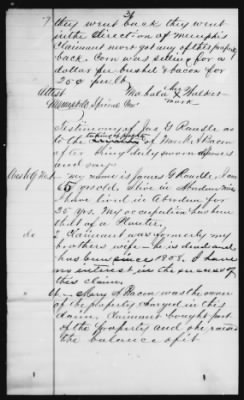 21
7 they went back they went
in the direction of Memphis
Claimant never got any of this property
back. Corn was selling for a
dollar per bushel & bacon for
25¢ per lb.
Attest Mahala her X
mark
Testimony of Jas G Randle as
to the of Mrs Bacon
after being duly sworn deposes
and says
my name is James G Randle I am
65 yrs old I live in Aberdeen Miss
I have lived in Aberdeen for
25 yrs. My occupation has been
that of a Planter.
do 2 Claimant was formerly my
brothers wife - he is dead and
has been since 1858. I have
no interest in the success of
this claim.
Mary A Bacon was the owner
of the property charged in this
claim. Claimant bought part
of the property and she raised
the balance of it